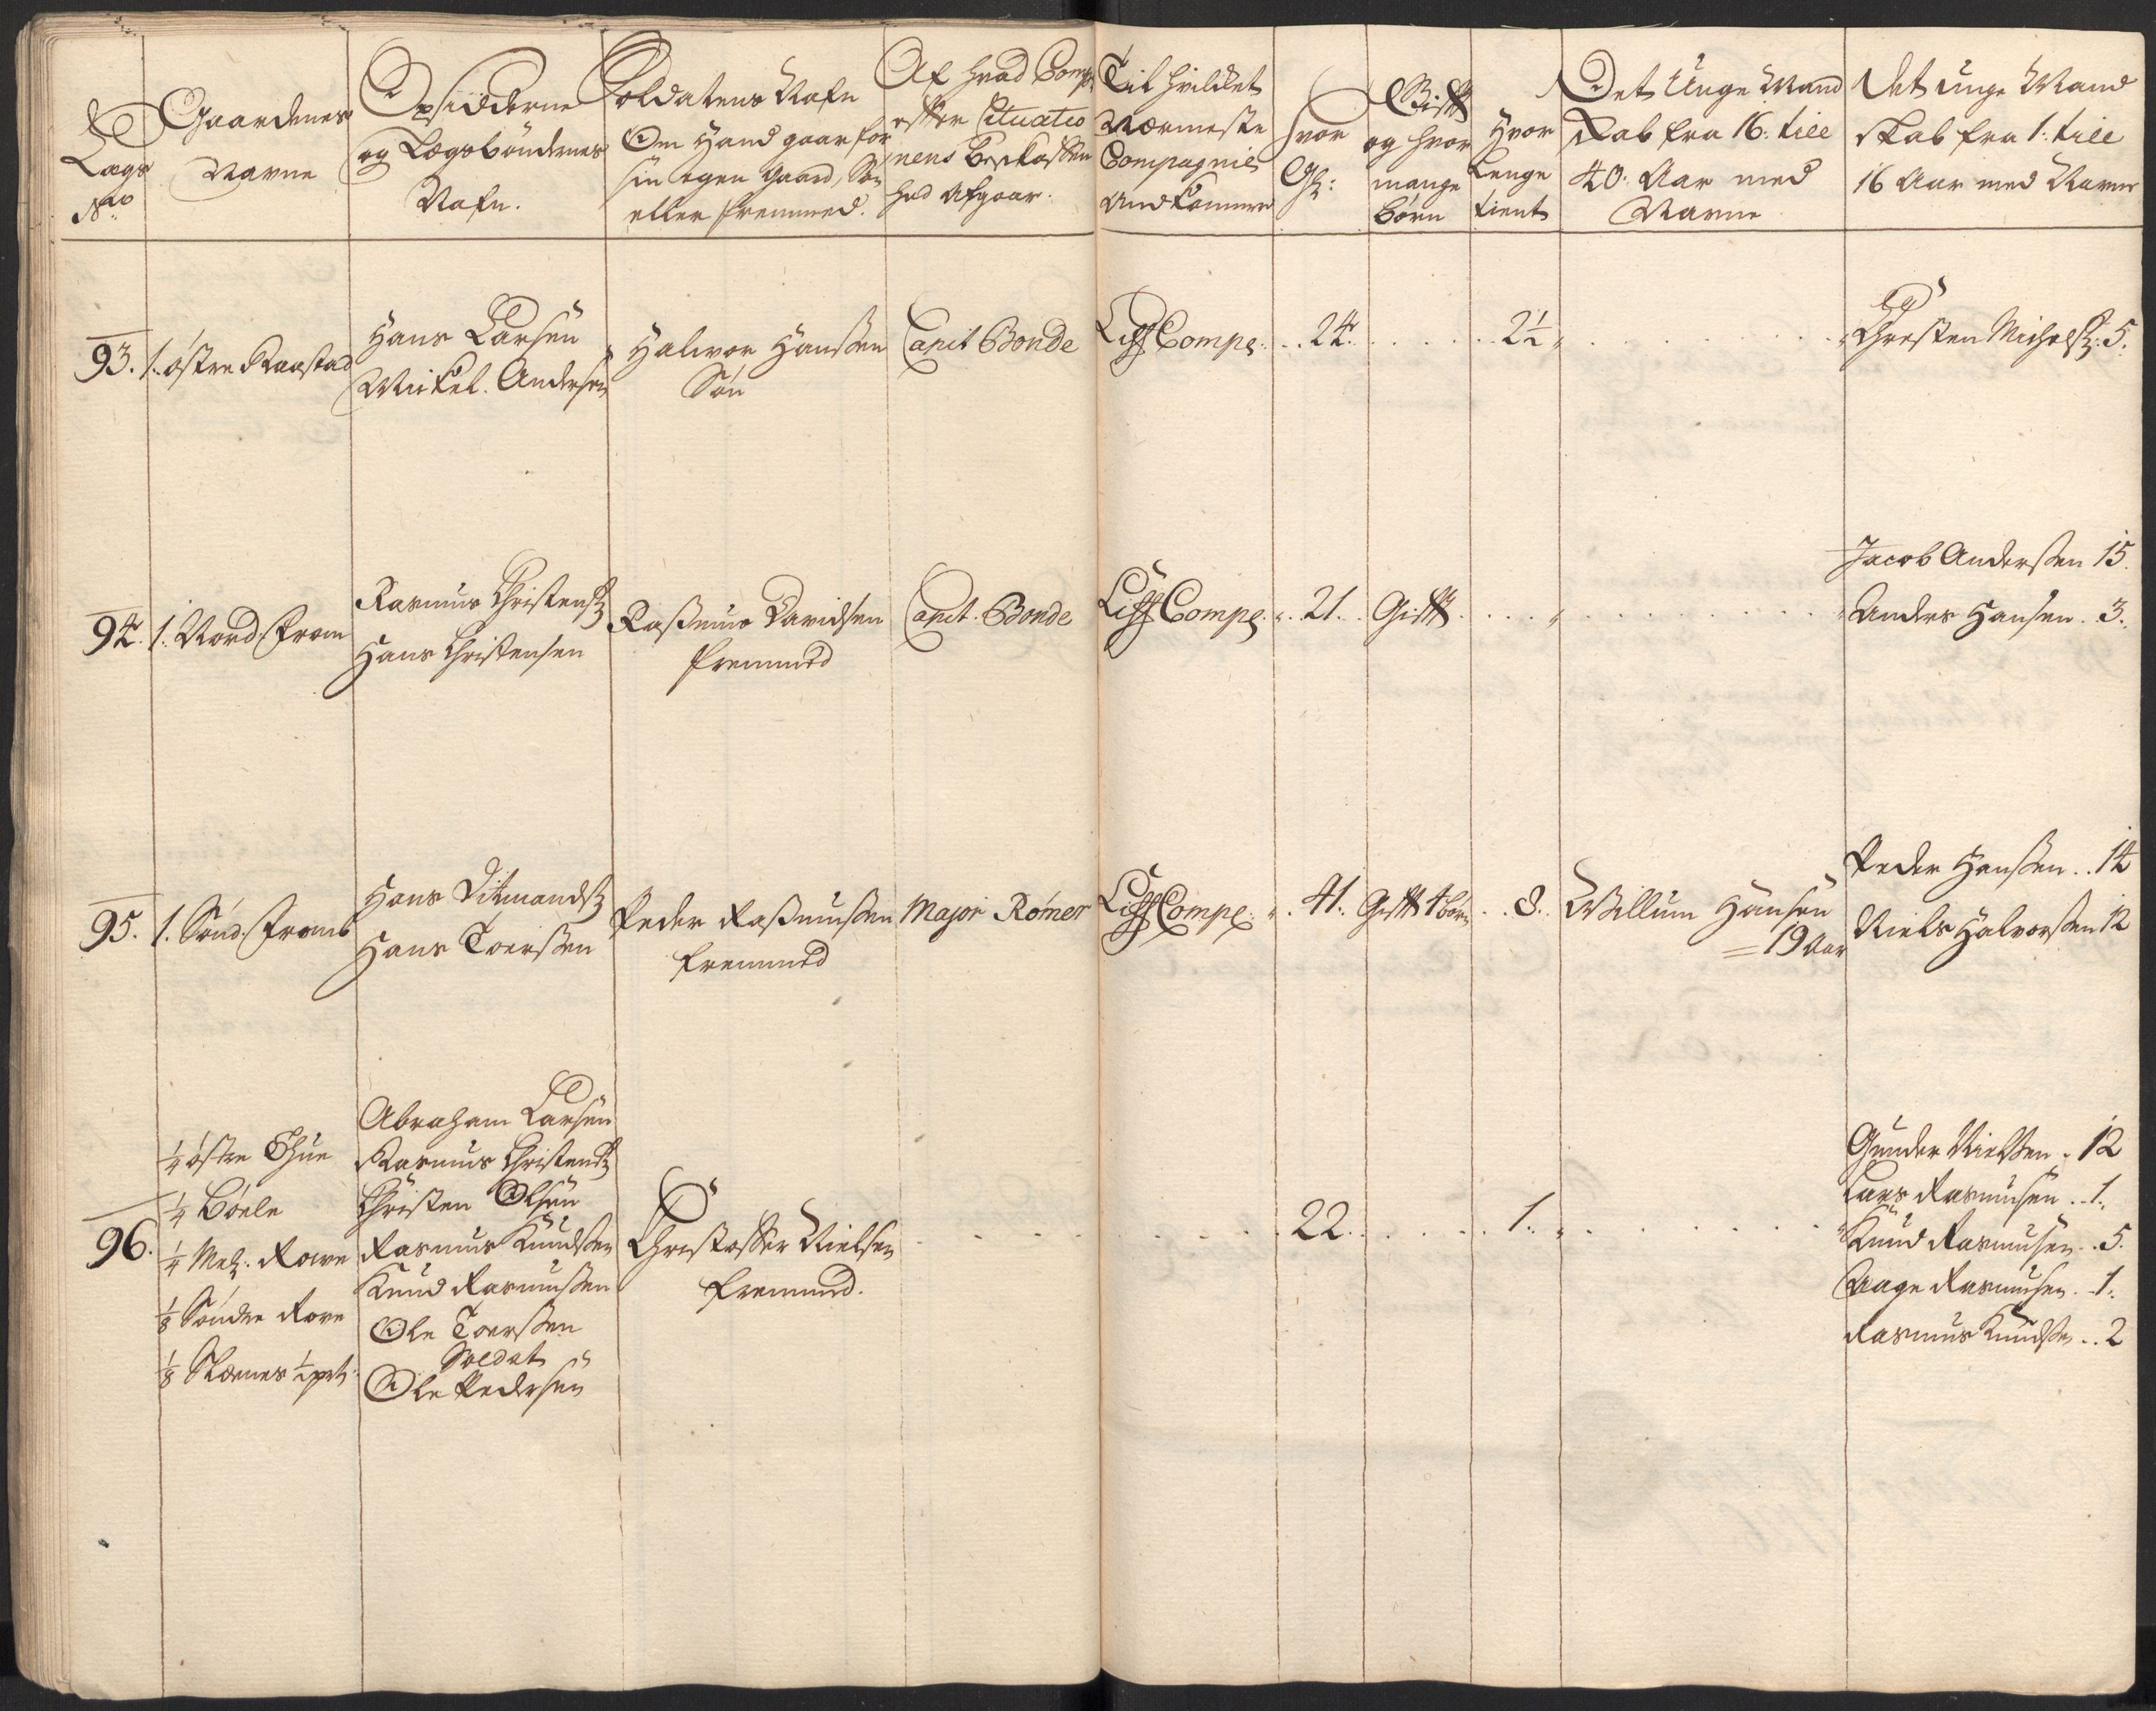 Lægs
No
Gaardenes
Navne
Opsidderne
og Lægsbøndernes
Nafn.
Soldatens Nafn
Om Hand gaar for
sin egen Gaard, Søn
eller fremmed.
Af hvad Comp:
efter Situatio
nens Beskaffen
hed Afgaar.
Til hvilcket
Nærmeste
Compagnie
Andkommer
Hvor
Gl:
Gift
og hvor
mange
børn
Hvor
Lenge
tient
Det Unge Mand
skab fra 16: till
40: Aar med
Navne
Det unge Mand
skab fra 1: till
16 Aar med Navne
93. 1. østre Raastad
Hans Larsen
Michel Andersen
Halvor Hanssen
Søn
Capit Bonde
Liff Compe: 24. 2½
Christen Michels: 5.
94. 1. Nord. From
Rasmus Christens:
Hans Christensen
Rassmus Davidsen
fremmed
Capit. Bonde
Liff Compe. 21. Gift
Jacob Anderssen 15.
Anders Hansen. 3.
95. 1. Sønd. Fromb
Hans Ditmands:
Hans Toerssen
Peder Rassmussen
fremmed
Major Römer
Liff Compe: 41. Gift 4 børn 8.
Willum Hansen
= 19 Aar
Peder Hanssen .. 14
Niels Halvorssen 12
96.
¼ østre Thue
¼ Bøele
¼ Mel: Rove
⅛ Søndre Rove
⅛ Skornes ½ prt
Abraham Larsen
Rasmus Christens:
Christen Olsen
Rasmus Knudssen
Knud Rasmussen
Ole Toerssen
Soldat
Ole Pedersen
Christoffer Nielsen
fremmed.
22. 1.
Gunder Nielssen . 12
Lars Rasmusen . 1.
Knud Rasmusen . 5.
Aage Rasmusen . 1.
Rasmus Knudsen .. 2